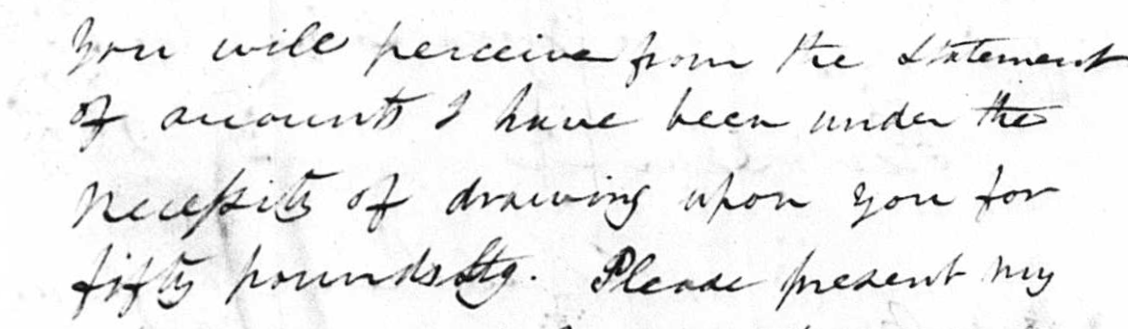 You will perceive from the Statement
of accounts I have been under the
necessity of drawing upon you for
fifty pounds Stg. Please present my